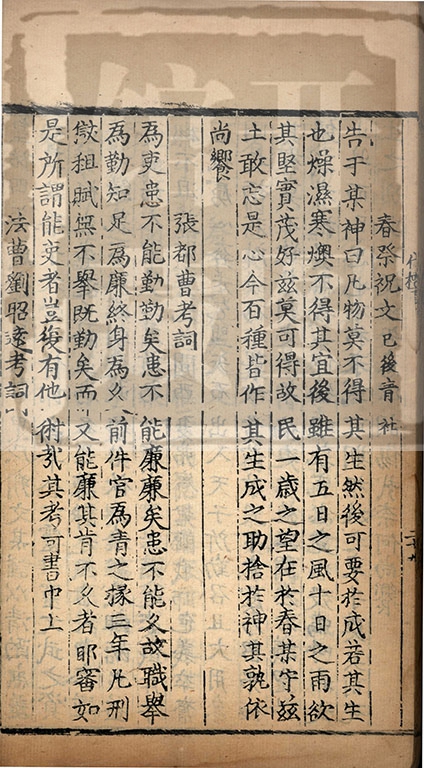 春祭祝文 已後青社
告于某神曰凡物莫不得其生然後可要於成若其生
也燥濕寒燠不得其宜後雖有五日之風十日之雨欲
其堅實茂好兹莫可得故民一歲之望在於春某守兹
土敢忘是心今百種皆作其生成之助捨於神其孰依
尚饗
張都曹考詞
為吏患不能勤勤矣患不能廉廉矣患不能乆故職舉
為勤知足為廉終身為乆前件官為青之掾三年凡刑
獄租賦無不舉既勤矣而又能廉其肯不乆者耶審如
是所謂能吏者豈復有他術哉其考可書中上
法曹劉昭遠考詞